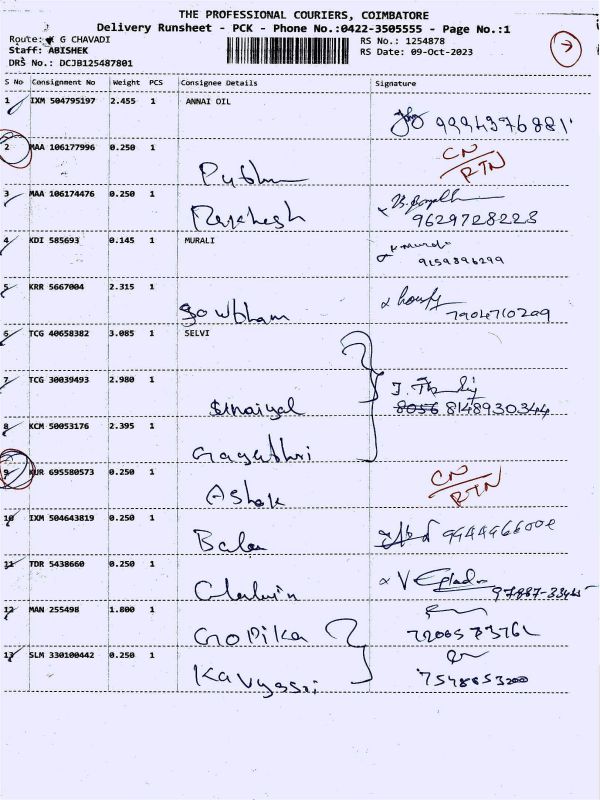 THE PROFESSIONAL COURIERS, COIMBATORE
Delivery Runsheet - PCK - Phone No.:0422-3505555 - Page No.:1
Route: K G CHAVADI
Staff: ABISHEK
DRS No.: DCJB125487801
RS No.: 1254878
RS Date: 09-Oct-2023
S No Consignment No Weight PCS Consignee Details Signature
1 IXM 504795197 2.455 1 ANNAI OIL 9994376881
2 MAA 106177996 0.250 1 CN/RTN
3 MAA 106174476 0.250 1 Rajkhesh 9629728223
4 KDI 585693 0.145 1 MURALI 9159896299
5 KRR 5667004 2.315 1 Gowtham 7904710209
6 TCG 40658382 3.085 1 SELVI
7 TCG 30039493 2.980 1 8056 8148930344
8 KCM 50053176 2.395 1 Gayathri
9 KUR 695580573 0.250 1 Ashok CN/RTN
10 IXM 504643819 0.250 1 Bala
11 TDR 5438660 0.250 1
12 MAN 255498 1.800 1 Gopika
13 SLM 330100442 0.250 1 Kavyasri 7548853200